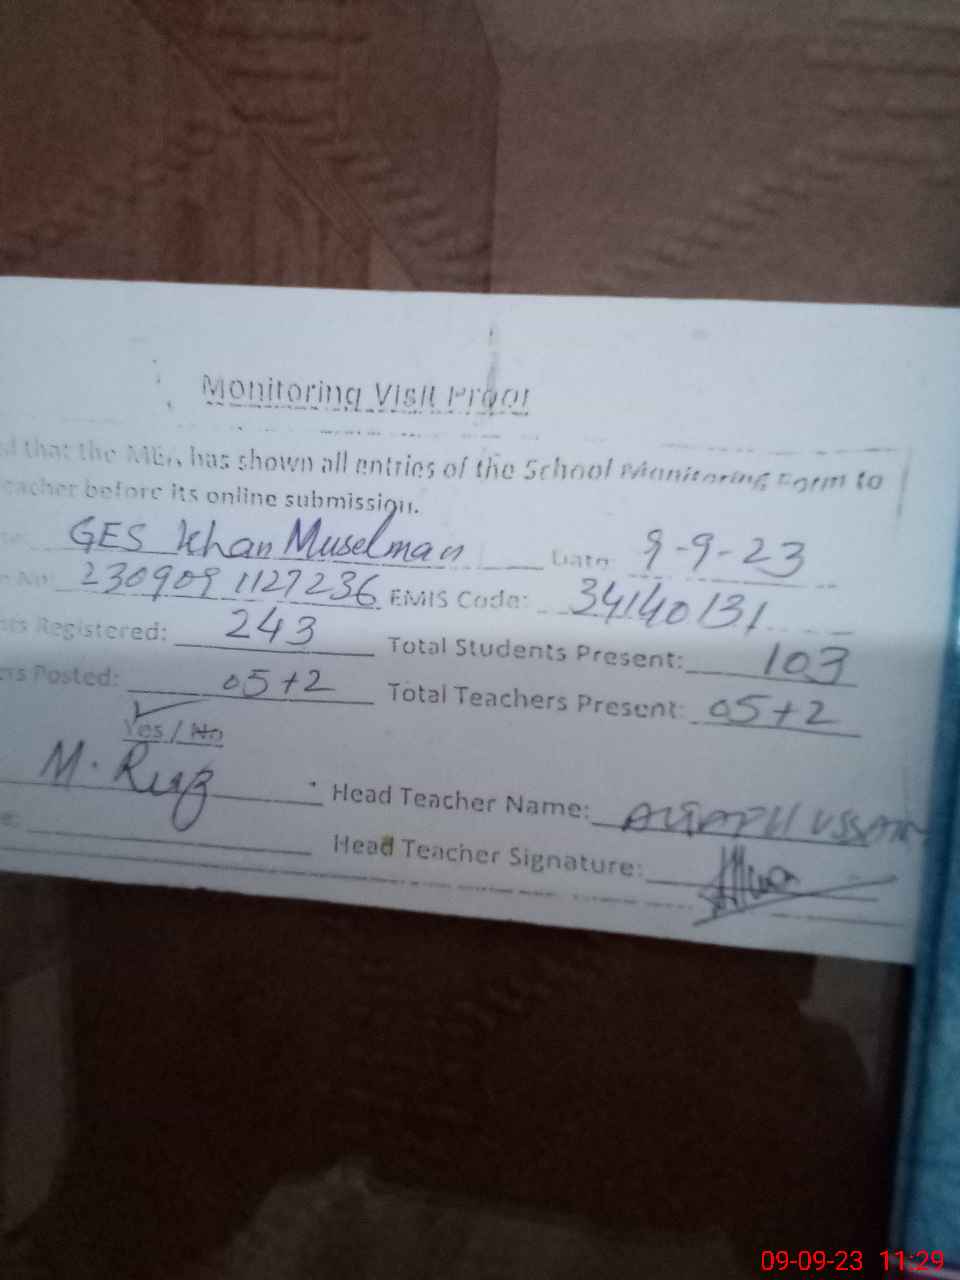 Monitoring Visit Proof
that the MEA has shown all entries of the School Monitoring Form to
eacher before its online submission.
GES Khan Muselman Date 9-9-23
230909 1127236 EMIS Code: 34140131
nts Registered: 243 Total Students Present: 103
ers Posted: 05+2 Total Teachers Present: 05+2
Yes / No
M. Head Teacher Name:
Head Teacher Signature:
09-09-23 11:29